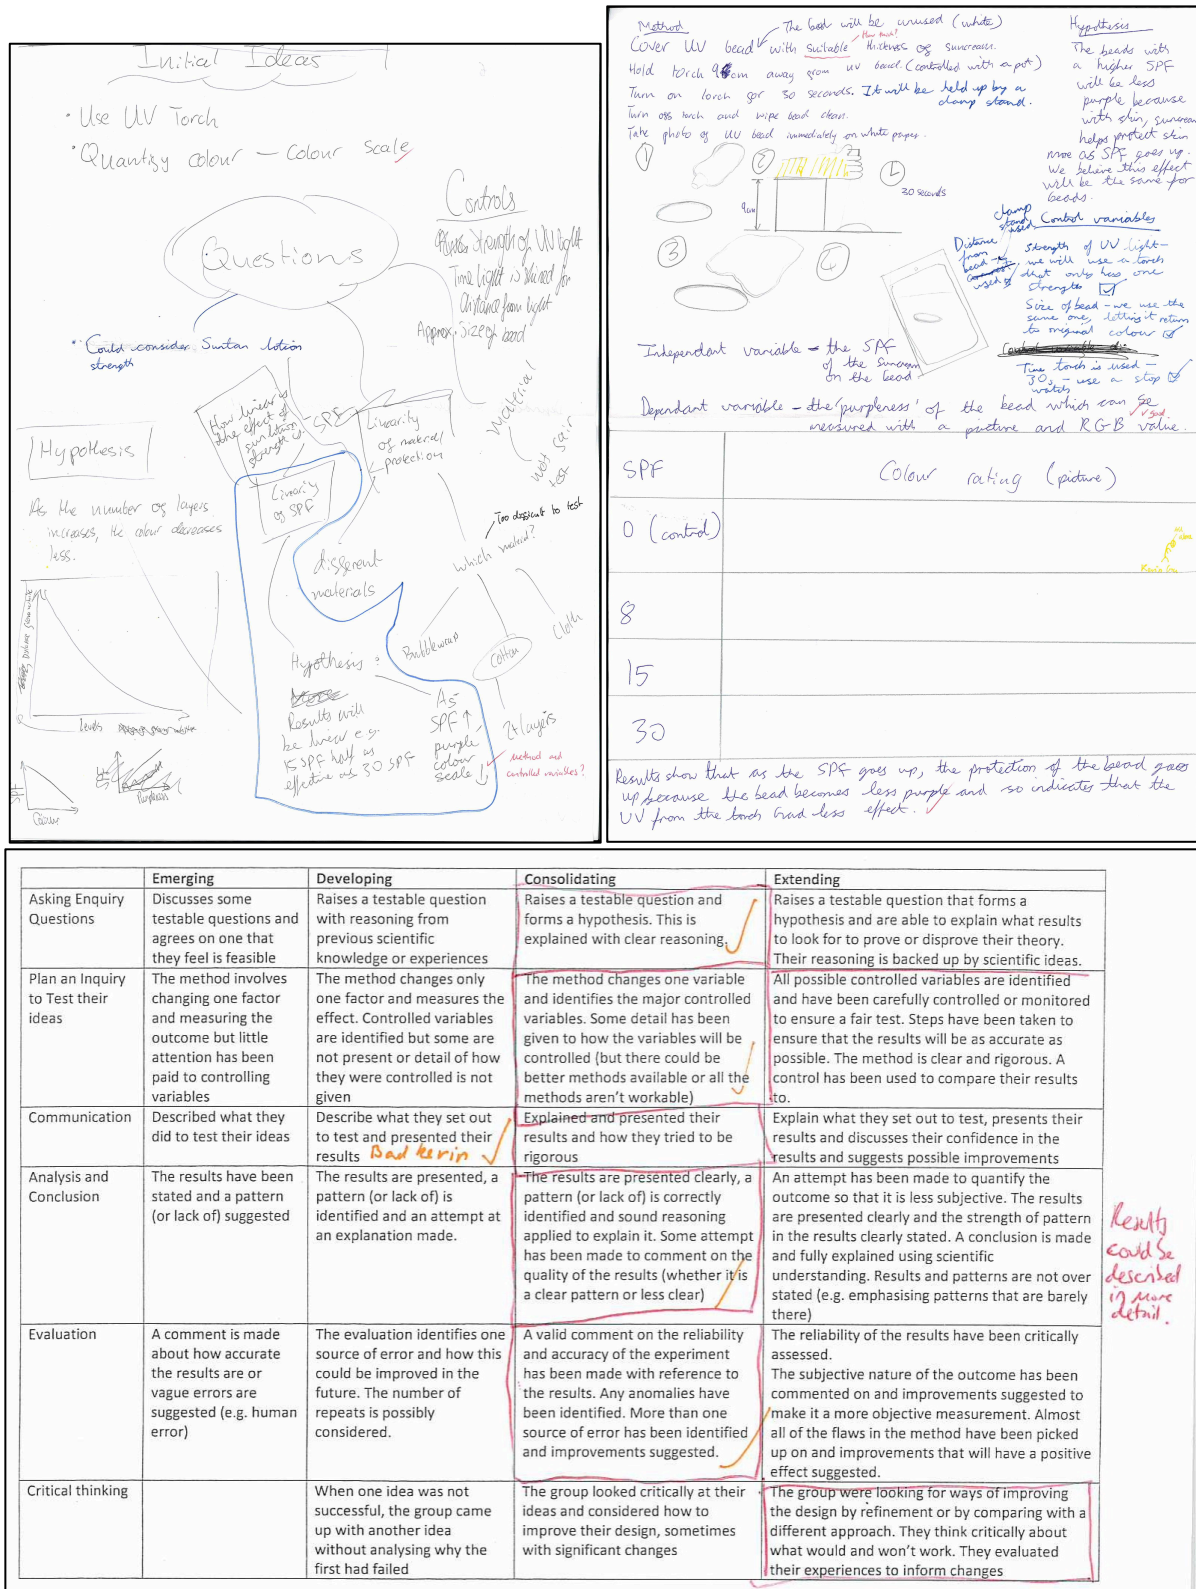 Initial Ideas
• Use UV Torch
• Quantify colour – Colour scale
Questions
Controls
Strength of UV light
Time light is shined for
Distance from light
Approx. Size of bead
• Could consider Suntan lotion
strength
How linear is
the effect of
suntan lotion
strength
SPF
Linearity
of material
protection
Material
Linearity
of SPF
Hypothesis
As the number of layers
increases, the colour decreases
less.
different
materials
Too difficult to test
which material?
Bubblewrap
Cotton
Cloth
2+ layers
Hypothesis:
Results will
be linear e.g.
15 SPF half as
effective as 30 SPF
As
SPF ↑
purple
colour
scale ↓
method and
controlled variables?
Levels
Method
The bead will be unused (white)
How much?
Cover UV bead with suitable thickness of suncream.
Hold torch 9cm away from uv bead. (controlled with a pot)
Turn on torch for 30 seconds. It will be held up by a
clamp stand.
Turn off torch and wipe bead clean.
Take photo of UV bead immediately on white paper.
1
2
9cm
30 seconds
3
4
Hypothesis
The beads with
a higher SPF
will be less
purple because
with skin, suncream
helps protect skin
more as SPF goes up.
We believe this effect
will be the same for
beads.
Control variables
clamp
stand
used
Distance
from
bead
used
Strength of UV light –
we will use a torch
that only has one
strength
Size of bead – we use the
same one, letting it return
to original colour
Time torch is used –
30s – use a stop
watch
Independant variable – the SPF
of the Suncream
on the bead
Dependant variable – the 'purpleness' of the bead which can be
measured with a picture and RGB value.
SPF Colour rating (picture)
0 (control)
8
15
30
Results show that as the SPF goes up, the protection of the bead goes
up because the bead becomes less purple and so indicates that the
UV from the torch had less effect.
Emerging Developing Consolidating Extending
Asking Enquiry
Questions
Discusses some
testable questions and
agrees on one that
they feel is feasible
Raises a testable question
with reasoning from
previous scientific
knowledge or experiences
Raises a testable question and
forms a hypothesis. This is
explained with clear reasoning.
Raises a testable question that forms a
hypothesis and are able to explain what results
to look for to prove or disprove their theory.
Their reasoning is backed up by scientific ideas.
Plan an Inquiry
to Test their
ideas
The method involves
changing one factor
and measuring the
outcome but little
attention has been
paid to controlling
variables
The method changes only
one factor and measures the
effect. Controlled variables
are identified but some are
not present or detail of how
they were controlled is not
given
The method changes one variable
and identifies the major controlled
variables. Some detail has been
given to how the variables will be
controlled (but there could be
better methods available or all the
methods aren't workable)
All possible controlled variables are identified
and have been carefully controlled or monitored
to ensure a fair test. Steps have been taken to
ensure that the results will be as accurate as
possible. The method is clear and rigorous. A
control has been used to compare their results
to.
Communication
Described what they
did to test their ideas
Describe what they set out
to test and presented their
results Bad kerin
Explained and presented their
results and how they tried to be
rigorous
Explain what they set out to test, presents their
results and discusses their confidence in the
results and suggests possible improvements
Analysis and
Conclusion
The results have been
stated and a pattern
(or lack of) suggested
The results are presented, a
pattern (or lack of) is
identified and an attempt at
an explanation made.
The results are presented clearly, a
pattern (or lack of) is correctly
identified and sound reasoning
applied to explain it. Some attempt
has been made to comment on the
quality of the results (whether it is
a clear pattern or less clear)
An attempt has been made to quantify the
outcome so that it is less subjective. The results
are presented clearly and the strength of pattern
in the results clearly stated. A conclusion is made
and fully explained using scientific
understanding. Results and patterns are not over
stated (e.g. emphasising patterns that are barely
there)
Results
could be
described
in more
detail.
Evaluation
A comment is made
about how accurate
the results are or
vague errors are
suggested (e.g. human
error)
The evaluation identifies one
source of error and how this
could be improved in the
future. The number of
repeats is possibly
considered.
A valid comment on the reliability
and accuracy of the experiment
has been made with reference to
the results. Any anomalies have
been identified. More than one
source of error has been identified
and improvements suggested.
The reliability of the results have been critically
assessed.
The subjective nature of the outcome has been
commented on and improvements suggested to
make it a more objective measurement. Almost
all of the flaws in the method have been picked
up on and improvements that will have a positive
effect suggested.
Critical thinking
When one idea was not
successful, the group came
up with another idea
without analysing why the
first had failed
The group looked critically at their
ideas and considered how to
improve their design, sometimes
with significant changes
The group were looking for ways of improving
the design by refinement or by comparing with a
different approach. They think critically about
what would and won't work. They evaluated
their experiences to inform changes